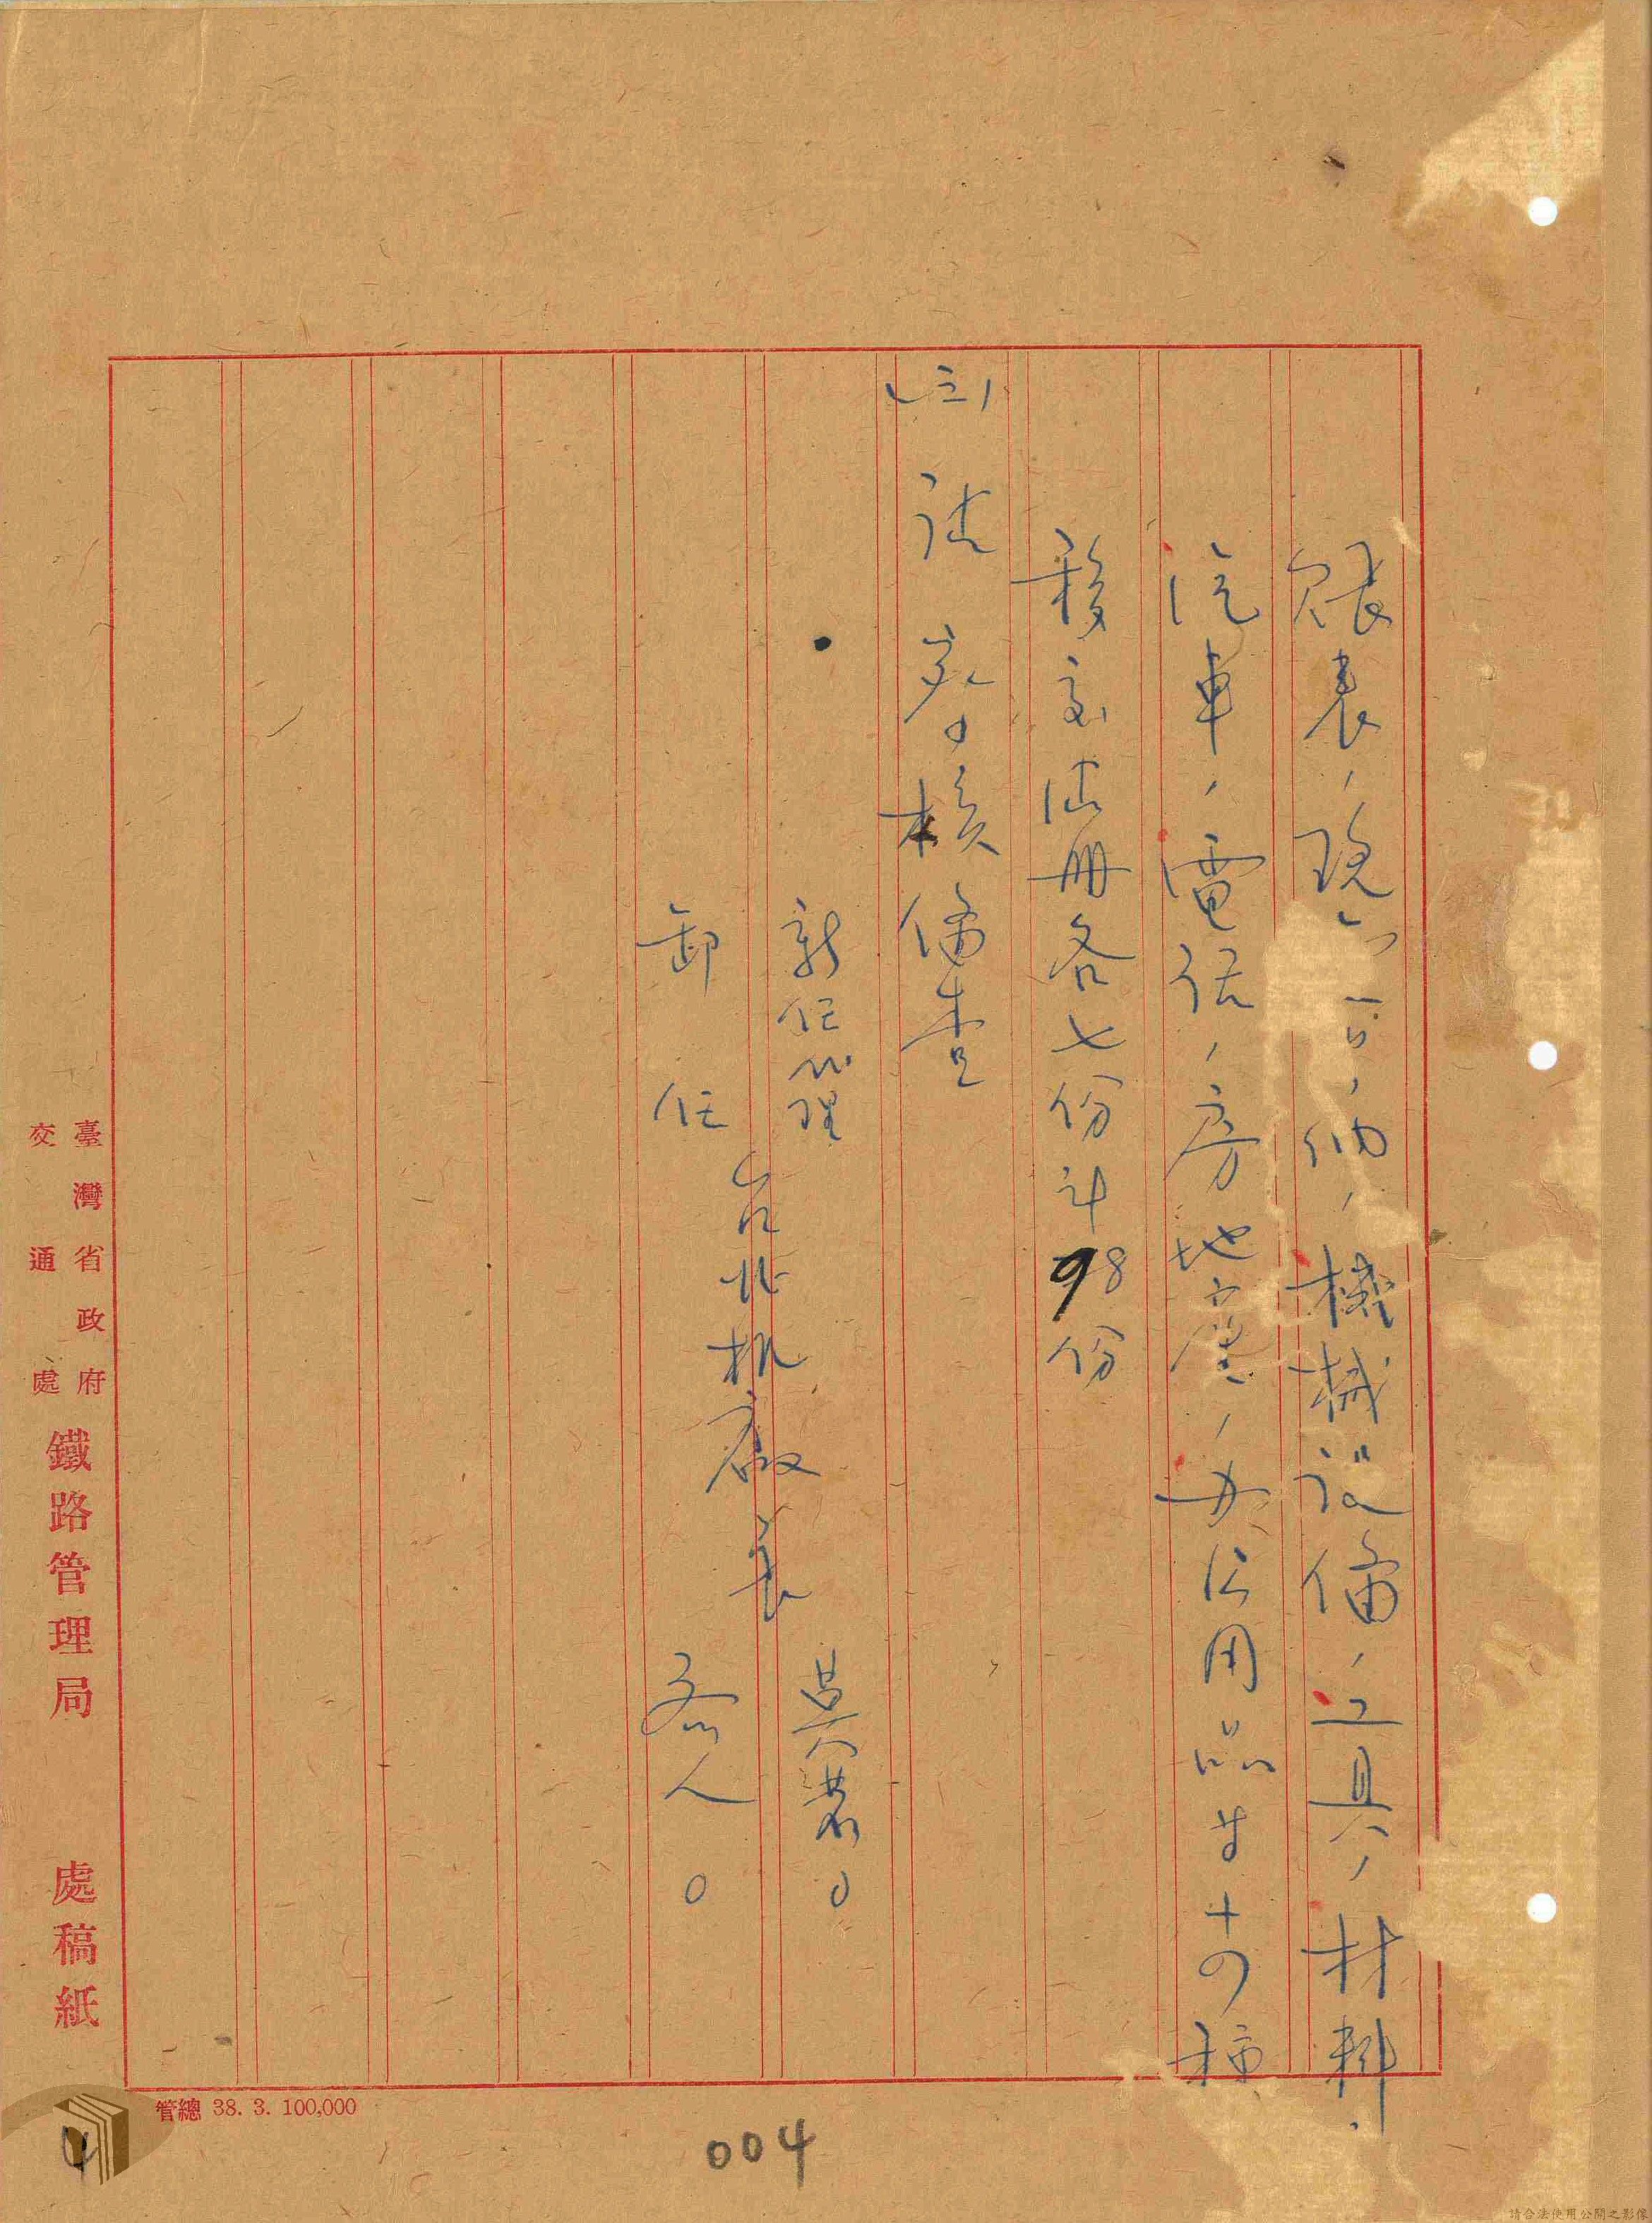 賬表，現
，機械設備，工具，材料，
汽車，電話，房地產，办公用品等十四種
移交清册各七份計98份
(三)請 察核備查
新任代理
台北机廠長
卸任
管總 38. 3. 100,000
臺灣省政府
交通處
鐵路管理局 處稿紙
004
4
請合法使用公開之影像